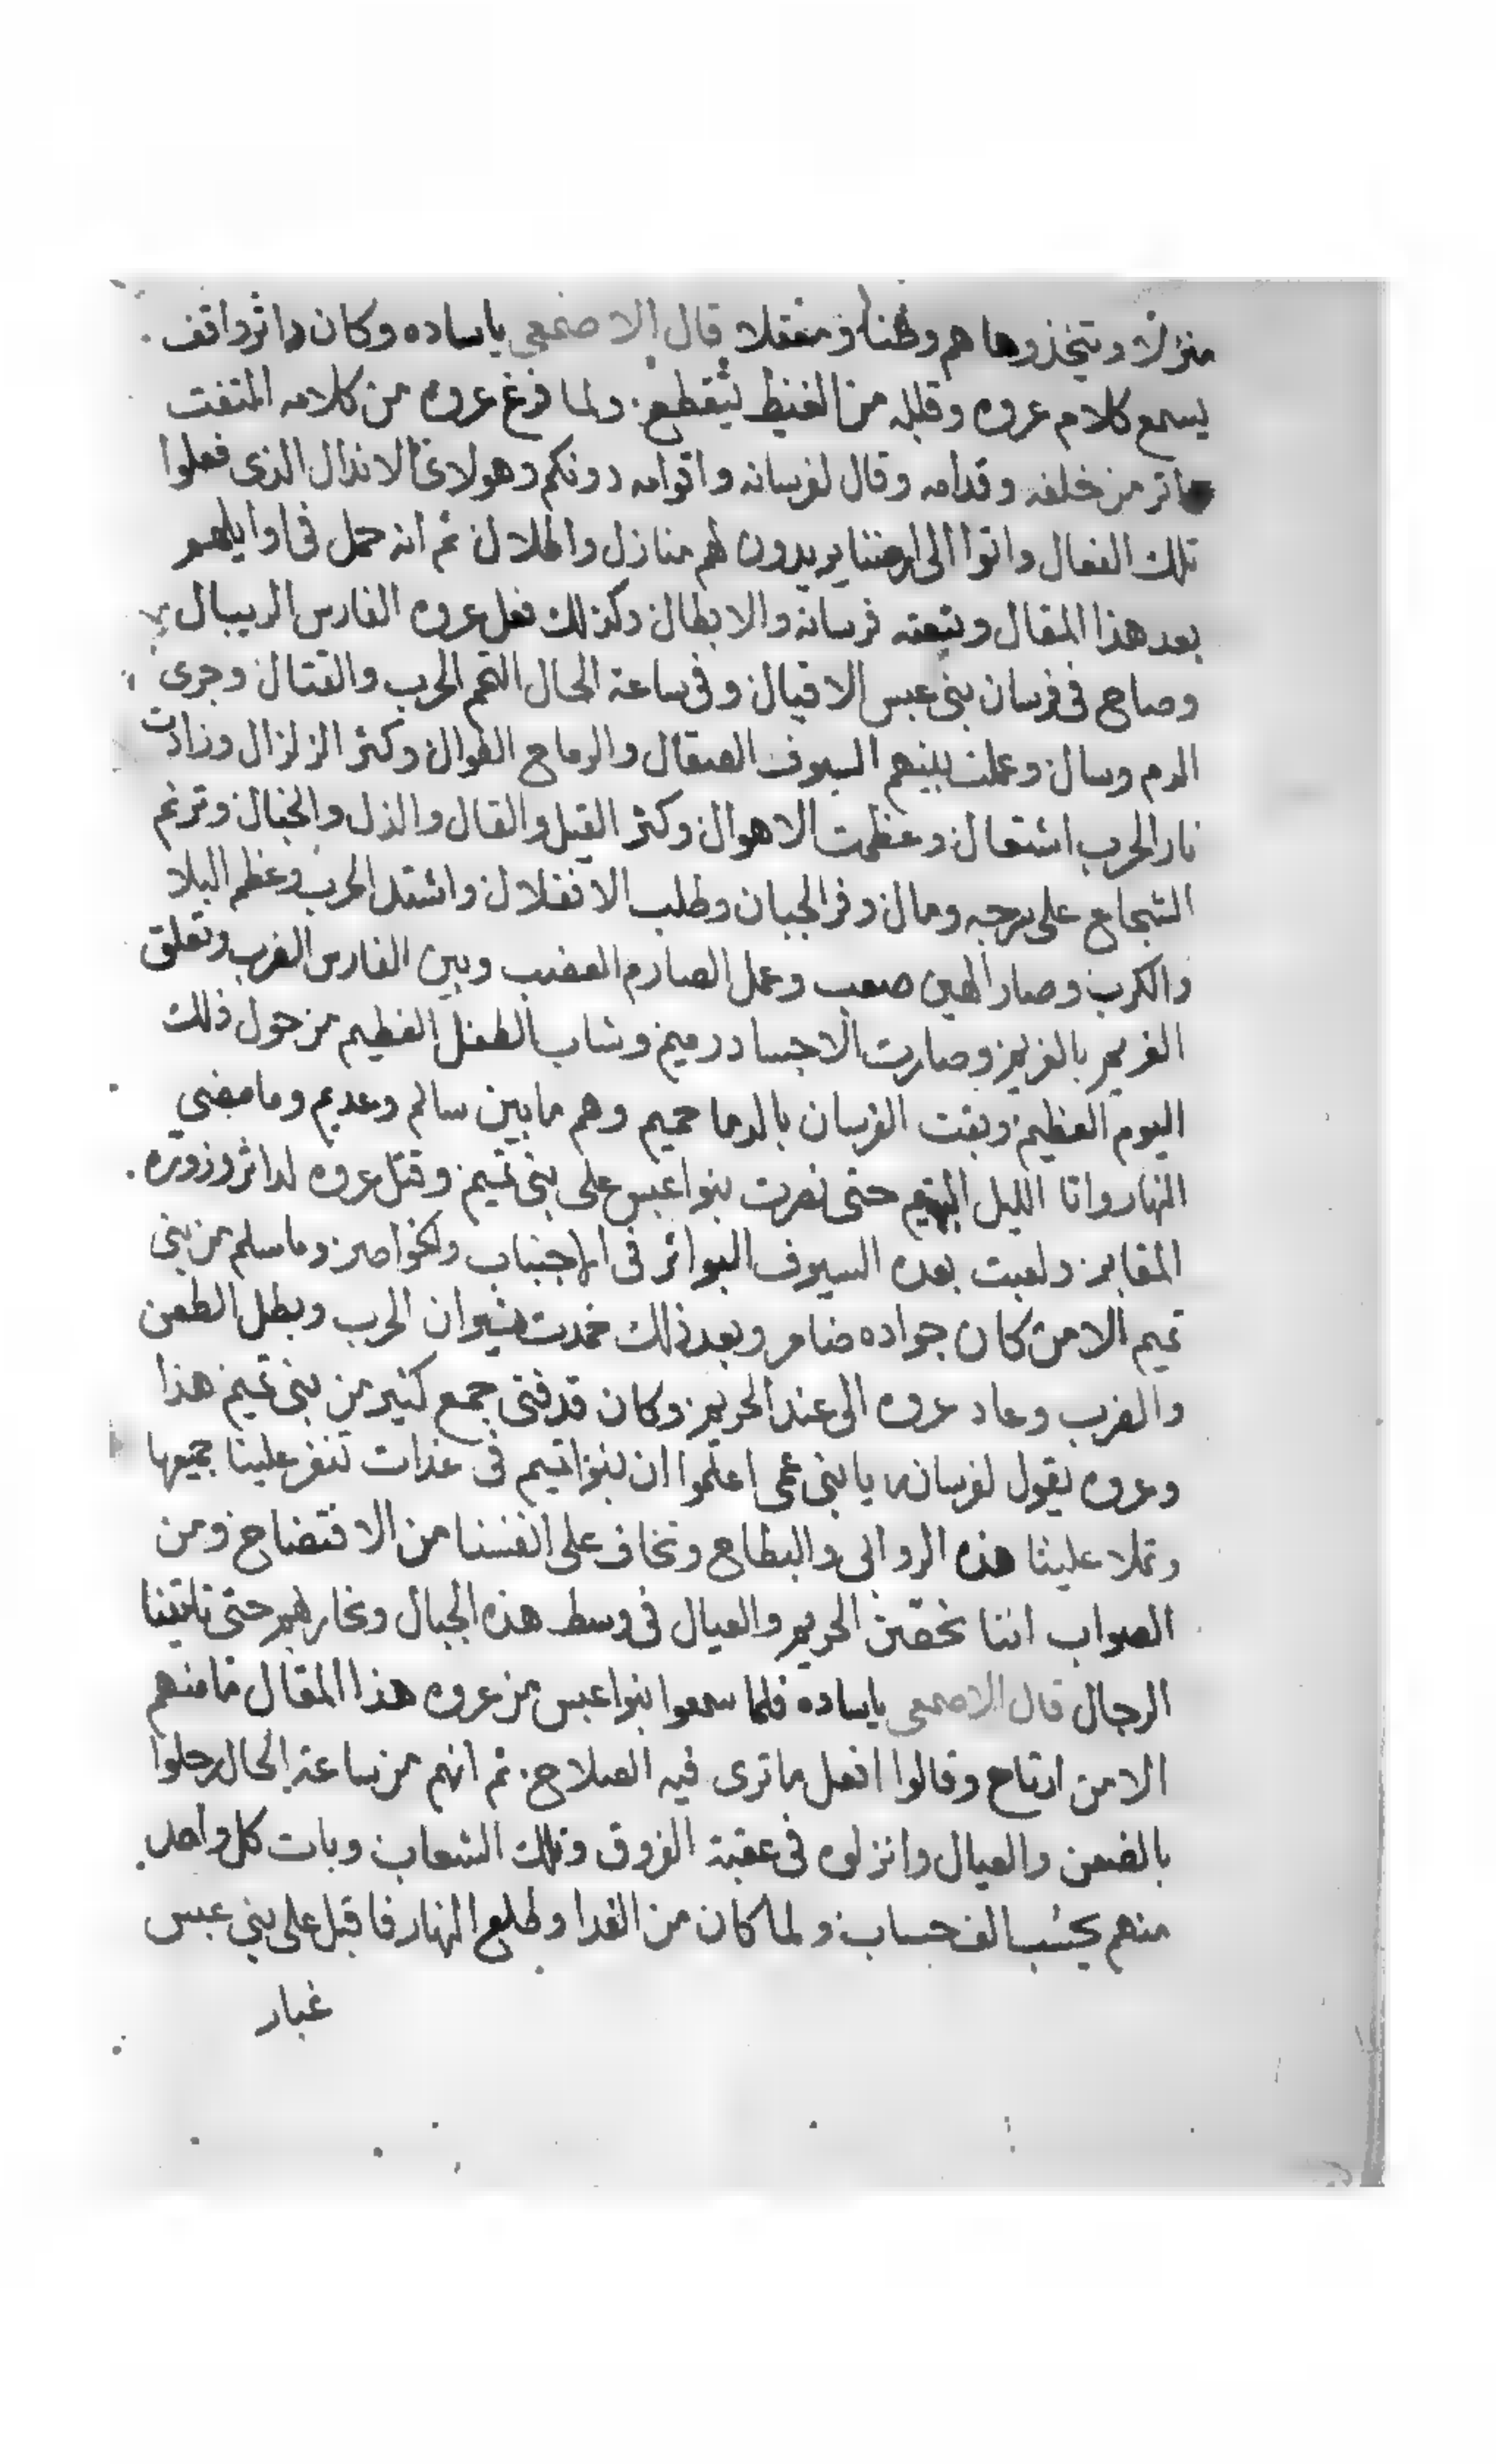 منزلا ويتخذوها هم وطنا ومعقلا قال الاصمعي ياساده وكان داثر واقف
يسمع كلام عروه وقلبه من الغيظ يتقطع ولما فرغ عروه من كلامه التفت
داثر من خلفه وقدامه وقال لفرسانه واقوامه دونكم وهولاى الاندال الذى فعلوا
تلك الفعال واتوا الى ارضنا يريدون لهم منازل واطلال ثم انه حمل فى اوايلهم
بعد هذا المقال وتبعته فرسانه والابطال وكذلك فعل عروه الفارس الريبال
وصاح فى فرسان بنى عبس الاقيال وفى ساعة الحال التحم الحرب والقتال وجرى
الدم وسال وعملت بينهم السيوف الصقال والرماح الطوال وكثر الزلزال وزادت
نار الحرب اشتعال وعظمت الاهوال وكثر القيل والقال والذل والخبال وترنم
الشجاع على سرجه ومال وفر الجبان وطلب الانفلال واشتد الحرب وعظم البلا
والكرب وصار الهين صعب وعمل الصارم العضب وبين الفارس الضرب وتعلق
الغريم بالغريم وصارت الاجساد رميم وشاب الطفل الفطيم من حول ذلك
اليوم العظيم وبقت الفرسان بالدما حميم وهم ما بين سالم وعديم وما مضي
النهار واتا الليل البهيم حتى نصرت بنوا عبس على بنى تميم وقتل عروه لداثر وزوره
المقابر ولعبت بعده السيوف البواتر فى الاجناب والخواصر وما سلم من بنى
تميم الا من كان جواده ضامر وبعد ذلك خمدت نيران الحرب وبطل الطعن
والضرب وعاد عروه الى عند الحريم وكان قد فنى جمع كثير من بنى تميم هذا
وعروه يقول لفرسانه يا بنى عمى اعلموا ان بنوا تميم فى غدات تنفر علينا جميعها
وتملا علينا هذه الروابى والبطاح ونخاف على انفسنا من الافتضاح ومن
الصواب اننا نحصن الحريم والعيال فى وسط هذه الجبال ونحاربهم حتى تاتينا
الرجال قال الاصمعى ياساده فلما سمعوا بنوا عبس من عروه هذا المقال فما منهم
الا من ارتاح وقالوا افعل ما ترى فيه الصلاح ثم انهم من ساعة الحال رحلوا
بالضعن والعيال وانزلوه فى عقبة الزوق وتلك الشعاب وبات كل واحد
منهم يحسب الف حساب ولما كان من الغدا وطلع النهار فاقبل على بني عبس
غبار